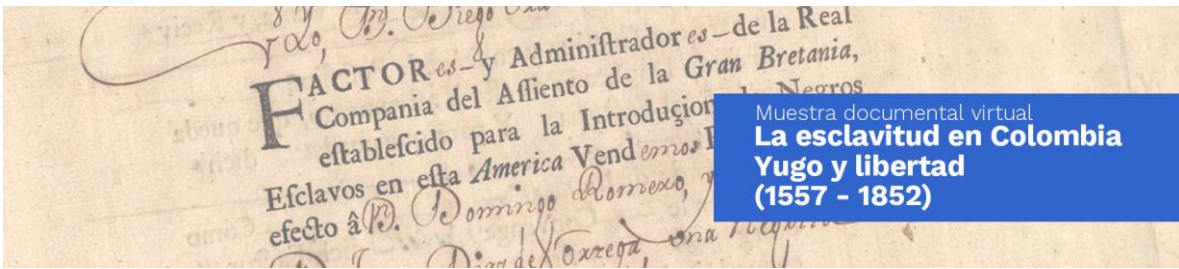 Dn. Diego
FACTORes y Adminiſtradores de la Real
Compania del Aſſiento de la Gran Bretania,
eſtableſcido para la Introduçion de Negros
Eſclavos en eſta America Vendemos
efecto â Dn. Domingo Romero, y
una
Muestra documental virtual
La esclavitud en Colombia
Yugo y libertad
(1557 - 1852)